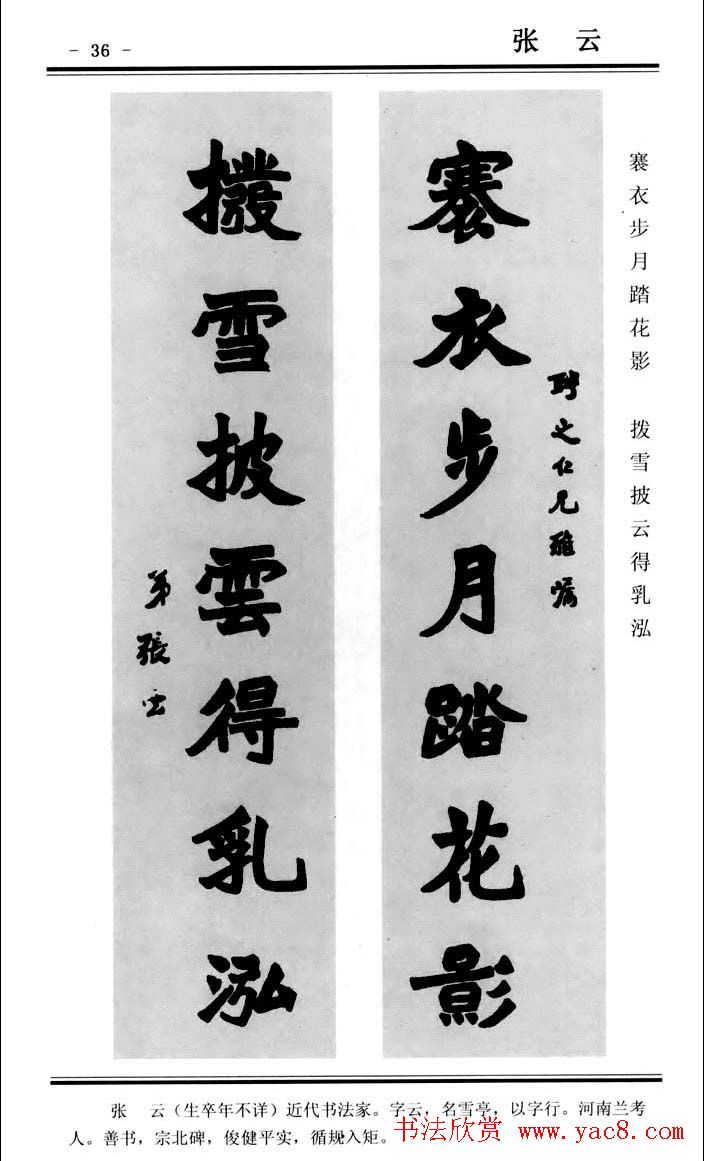 - 36 -
张 云
褰衣步月踏花影 拨雪披云得乳泓
褰衣步月踏花影
聘之仁兄雅嘱
撥雪披雲得乳泓
弟張云
张 云（生卒年不详）近代书法家。字云，名雪亭，以字行。河南兰考
人。善书，宗北碑，俊健平实，循规入矩。
书法欣赏 www.yac8.com